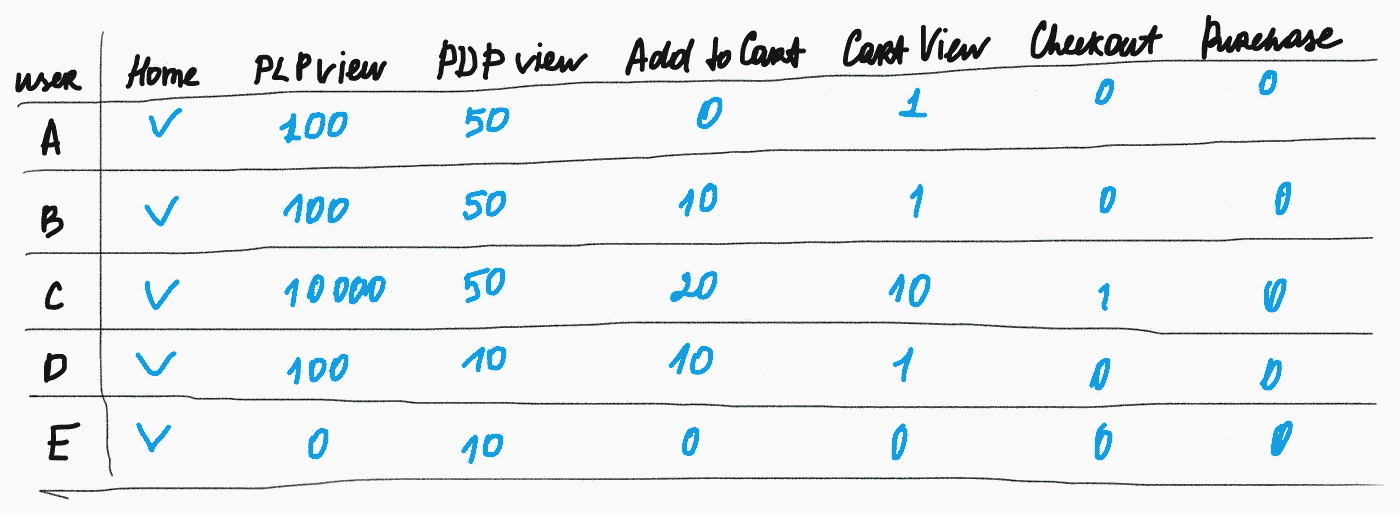 user Home PLP view PDP view Add to Cart Cart View Checkout Purchase
A ✓ 100 50 0 1 0 0
B ✓ 100 50 10 1 0 0
C ✓ 10 000 50 20 10 1 0
D ✓ 100 10 10 1 0 0
E ✓ 0 10 0 0 0 0